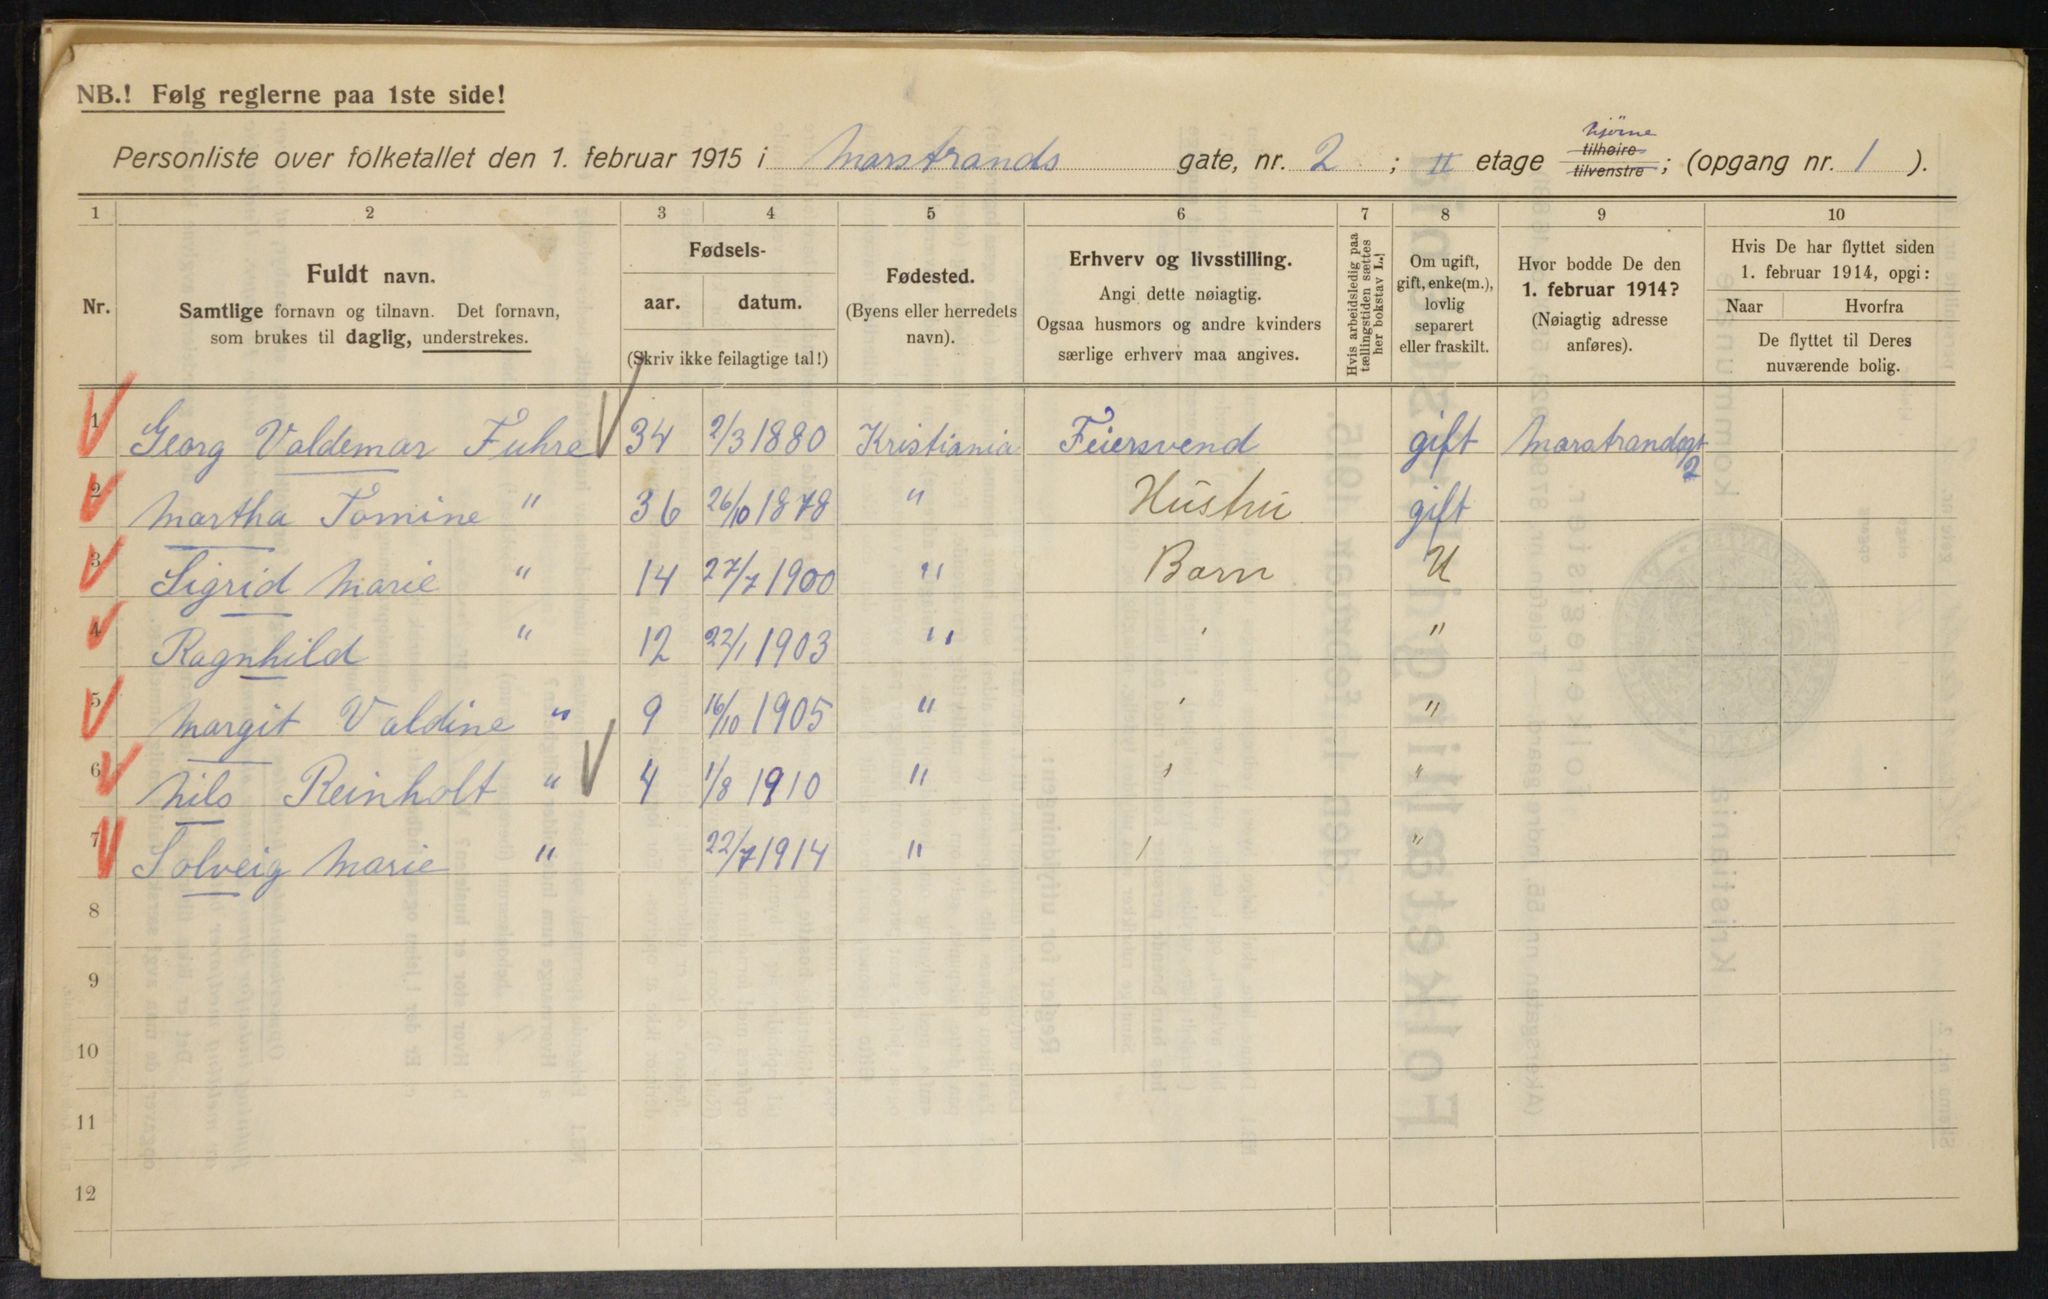 NB.! Følg reglerne paa 1ste side!
hjörne
Personliste over folketallet den 1. februar 1915 i Marstrands gate, nr. 2 ; II etage tilhøire tilvenstre ; (opgang nr. 1 ).
1 2 3 4 5 6 7 8 9 10
Nr.
Fuldt navn.
Samtlige fornavn og tilnavn. Det fornavn,
som brukes til daglig, understrekes.
Fødsels-
aar. datum.
(Skriv ikke feilagtige tal!)
Fødested.
(Byens eller herredets
navn).
Erhverv og livsstilling.
Angi dette nøiagtig.
Ogsaa husmors og andre kvinders
særlige erhverv maa angives.
Hvis arbeidsledig paa
tællingstiden sættes
her bokstav L.)
Om ugift,
gift, enke(m.),
lovlig
separert
eller fraskilt.
Hvor bodde De den
1. februar 1914?
(Nøiagtig adresse
anføres).
Hvis De har flyttet siden
1. februar 1914, opgi:
Naar Hvorfra
De flyttet til Deres
nuværende bolig.
1 Georg Valdemar Fuhre 34 2/3 1880 Kristiania Feiersvend gift Marstrandsgt 2
2 Martha Tomine " 36 26/10 1878 " Hustru gift
3 Sigrid Marie " 14 27/7 1900 " Barn U
4 Ragnhild " 12 22/1 1903 " ' "
5 Margit Valdine " 9 16/10 1905 " ' "
6 Nils Reinholt " 4 1/8 1910 " ' "
7 Solveig Marie " 22/7 1914 " ' "
8
9
10
11
12